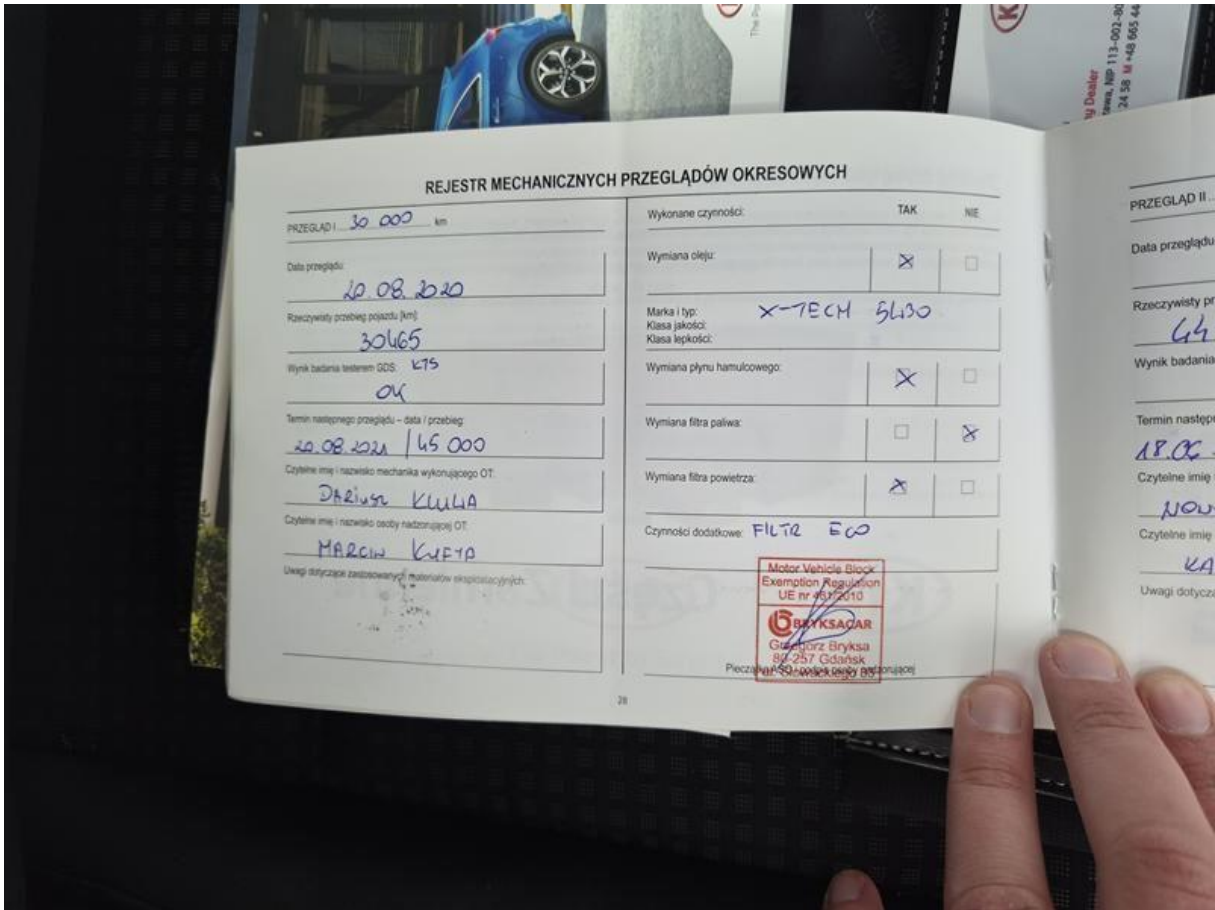 The Po
ny Dealer
zawa, NIP 113-002-80
24 58 M +48 665 44
REJESTR MECHANICZNYCH PRZEGLĄDÓW OKRESOWYCH
PRZEGLĄD I 30 000 km
Data przeglądu:
20.08.2020
Rzeczywisty przebieg pojazdu [km]:
30465
Wynik badania testerem GDS: KTS
OK
Termin następnego przeglądu – data / przebieg:
20.08.2021 / 45 000
Czytelne imię i nazwisko mechanika wykonującego OT:
DARIUSZ
Czytelne imię i nazwisko osoby nadzorującej OT:
MARCIN
Uwagi dotyczące zastosowanych materiałów eksploatacyjnych:
Wykonane czynności: TAK NIE
Wymiana oleju:
Marka i typ: X-TECH 5W30
Klasa jakości:
Klasa lepkości:
Wymiana płynu hamulcowego:
Wymiana filtra paliwa:
Wymiana filtra powietrza:
Czynności dodatkowe: FILTR ECO
Motor Vehicle Block
Exemption Regulation
UE nr 461/2010
BRYKSACAR
Grzegorz Bryksa
80-257 Gdańsk
ul. Słowackiego
Pieczątka ASO i podpis osoby nadzorującej
28
PRZEGLĄD II
Data przeglądu
Rzeczywisty pr
44
Wynik badania
Termin następ
18.06
Czytelne imię
NOW
Czytelne imię
KA
Uwagi dotycza